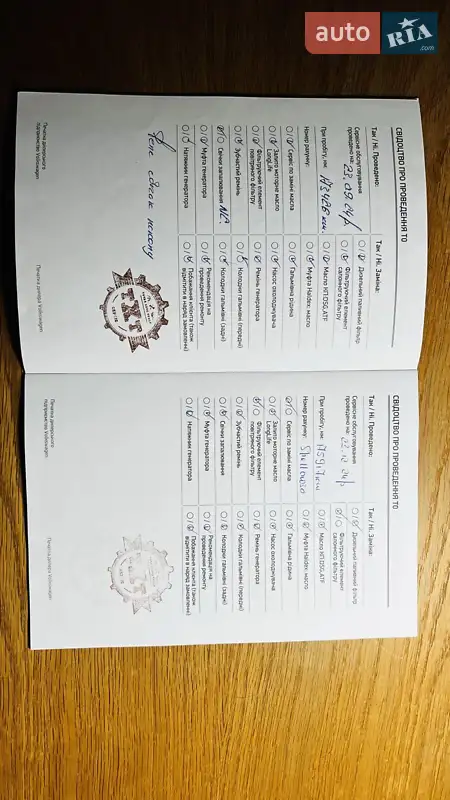 auto RIA.com
СВІДОЦТВО ПРО ПРОВЕДЕННЯ ТО
Так / Ні. Проведено:
Сервісне обслуговування
проведено на: 23.09.24р.
При пробігу, км:
Номер рахунку:
Сервіс по заміні масла
Залито моторне масло
LongLife
Фільтруючий елемент
повітряного фільтру
Зубчатий ремінь
Свічки запалювання
Муфта генератора
Натяжник генератора
Так / Ні. Заміна:
Дизельний паливний фільтр
Фільтруючий елемент
салонного фільтру
Масло КП DSG, ATF
Муфта Haldex: масло
Гальмівна рідина
Насос охолоджувача
Ремінь генератора
Колодки гальмівні (передні)
Колодки гальмівні (задні)
Рекомендація на
проведення ремонту
Побажання клієнта (також
відмітити в наряд замовленні)
Печатка дилерського
підприємства Volkswagen
Печатка дилера Volkswagen
СВІДОЦТВО ПРО ПРОВЕДЕННЯ ТО
Так / Ні. Проведено:
Сервісне обслуговування
проведено на: 22.12.24р
При пробігу, км:
Номер рахунку:
Сервіс по заміні масла
Залито моторне масло
LongLife
Фільтруючий елемент
повітряного фільтру
Зубчатий ремінь
Свічки запалювання
Муфта генератора
Натяжник генератора
Так / Ні. Заміна:
Дизельний паливний фільтр
Фільтруючий елемент
салонного фільтру
Масло КП DSG, ATF
Муфта Haldex: масло
Гальмівна рідина
Насос охолоджувача
Ремінь генератора
Колодки гальмівні (передні)
Колодки гальмівні (задні)
Рекомендація на
проведення ремонту
Побажання клієнта (також
відмітити в наряд замовленні)
Печатка дилерського
підприємства Volkswagen
Печатка дилера Volkswagen